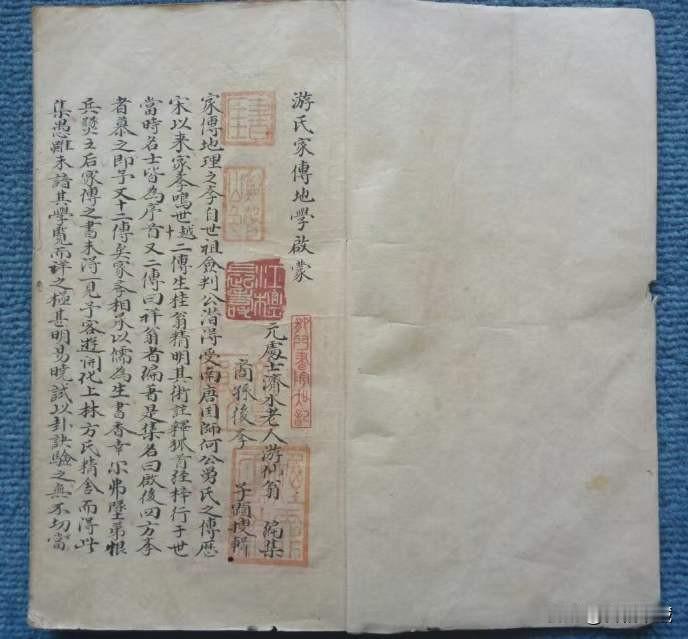 游氏家傳地學啟蒙
元處士濟水老人游仙翁 編集
裔孫後學 子頤 輯
家傳地理之學自世祖僉判公潛得受南唐国師何公溥氏之傳歷
宋以来家學鳴世越十二傳生桂翁精明其術註釋狐首经梓行于世
當時名士皆為序首又二傳曰祥翁者编著是集名曰啟後四方學
者慕之即予又十二傳矣家學相承以儒為生書香幸尔弗墜第恨
兵燹之后家傳之書未得一見予客遊開化上林方氏精舍而得此
集愚雖未諳其學覧而詳之極甚明易曉試以卦訣驗之無不切當